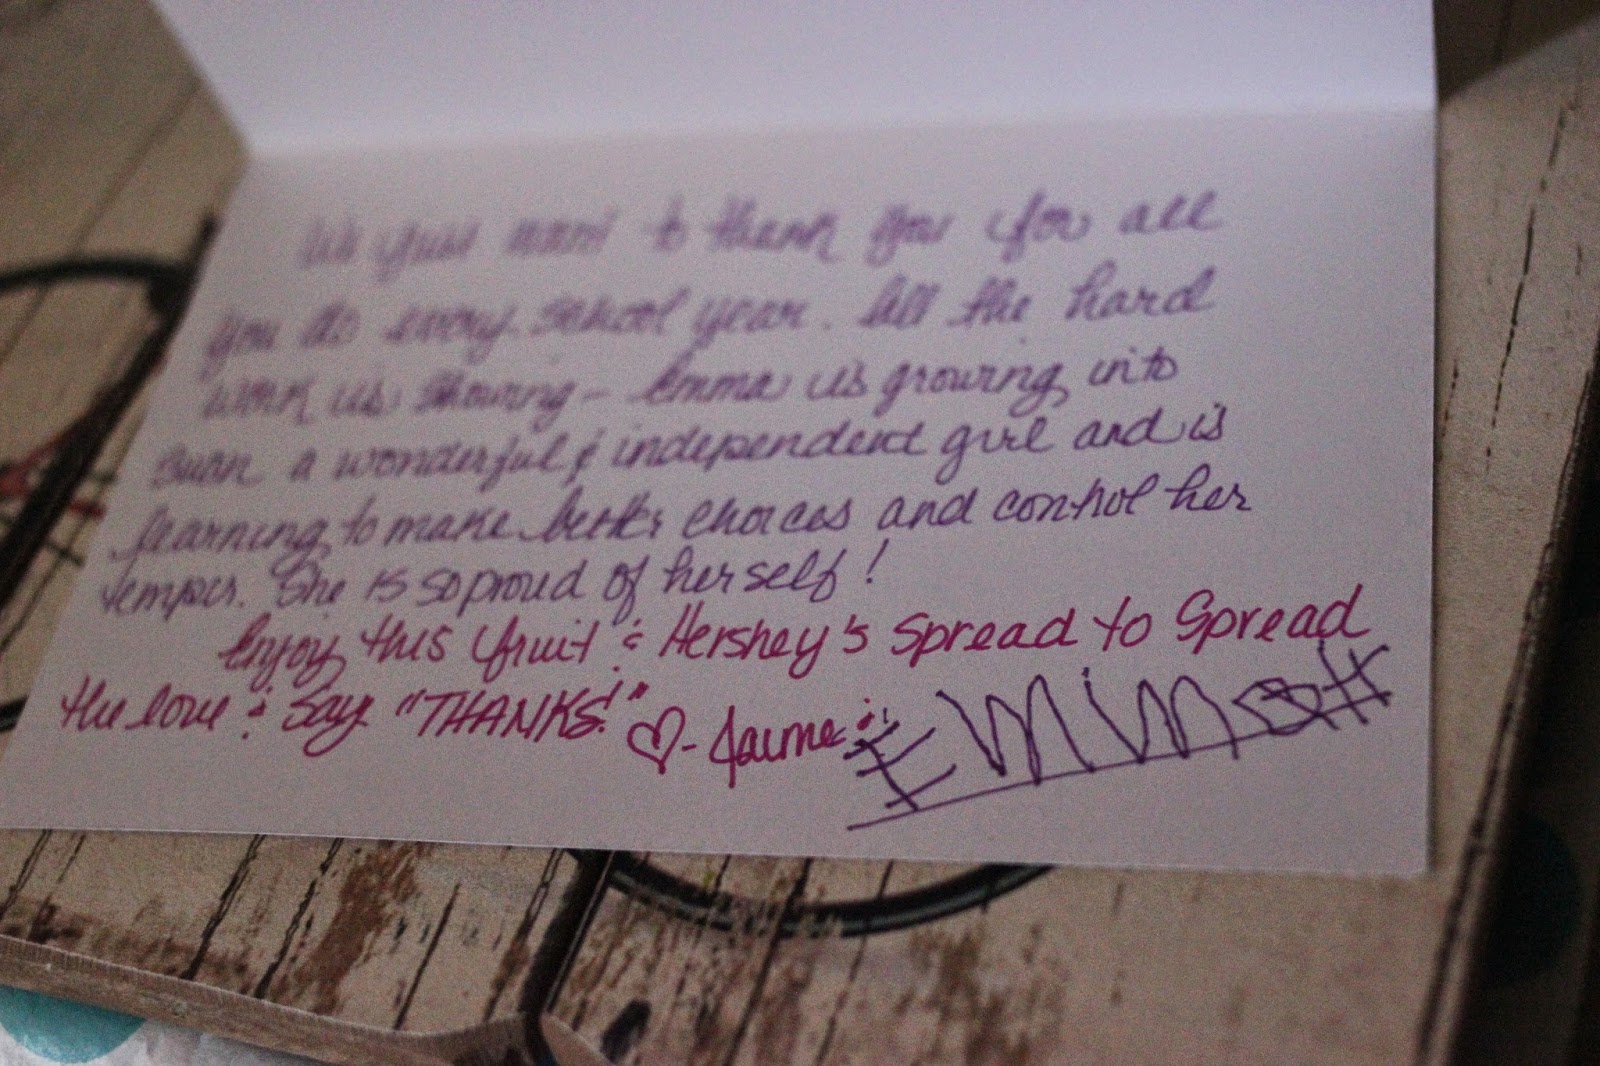 We just want to thank you for all
you do every school year. All the hard
work is showing - Emma is growing into
such a wonderful & independent girl and is
learning to make better choices and control her
temper. She is so proud of herself!
Enjoy this fruit & Hershey's Spread to Spread
the love & Say "THANKS!" ♡ - Jaime &
EMMA